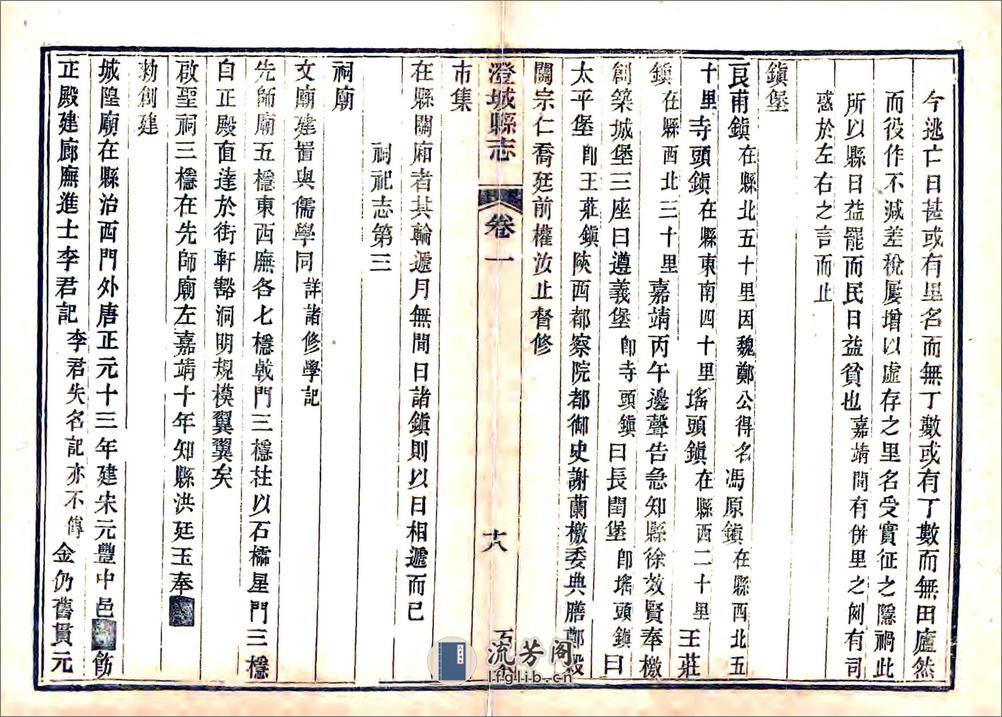 今逃亡日甚或有里名而無丁數或有丁數而無田廬然
而役作不減差稅屢增以虛存之里名受實征之隱禍此
所以縣日益罷而民日益貧也嘉靖間有併里之匈有司
惑於左右之言而止
鎮堡
一良甫鎮在縣北五十里因魏鄭公得名馮原鎮在縣西北五
十里寺頭鎮在縣東南四十里瑤頭鎮在縣西二十里王莊
鎮在縣西北三十里嘉靖丙午邊聲告急知縣徐效賢奉檄
創築城堡三座曰遵義堡卽寺頭鎮曰長閏堡卽瑤頭鎮曰
太平堡卽王莊鎮陝西都察院都御史謝蘭檄委典膳鄭毅
關宗仁喬廷前權汝止督修
澄城縣志
卷一
十八
流芳阁
lfglib.cn
市集
在縣關廂者其輪遞月無間日諸鎮則以日相遞而已
祠祀志第三
祠廟
文廟建置與儒學同詳諸修學記
先師廟五楹東西廡各七楹戟門三楹柱以石櫺星門三楹
自正殿直達於街軒豁洞明規模翼翼矣
啟聖祠三楹在先師廟左嘉靖十年知縣洪廷玉奉
勅創建
城隍廟在縣治西門外唐正元十三年建宋元豐中邑飭
正殿建廊廡進士李君記李君失名記亦不傳金仍舊貫元